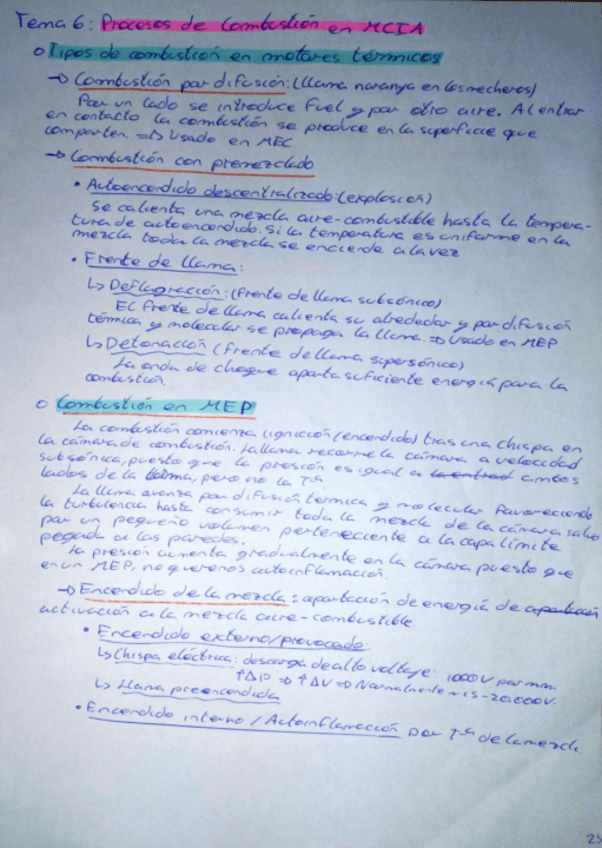 Tema 6: Procesos de Combustión en MCIA
o Tipos de combustión en motores térmicos
→ Combustión por difusión: (llama naranja en los mecheros)
Por un lado se introduce fuel y por otro aire. Al entrar
en contacto la combustión se produce en la superficie que
comparten. => Usado en MEC
→ Combustión con premezclado
• Autoencendido descentralizado: (explosión)
Se calienta una mezcla aire-combustible hasta la tempera-
tura de autoencendido. Si la temperatura es uniforme en la
mezcla toda la mezcla se enciende a la vez
• Frente de llama:
↳ Deflagración: (frente de llama subsónico)
El frente de llama calienta su alrededor y por difusión
térmica y molecular se propaga la llama. => Usado en MEP
↳ Detonación (frente de llama supersónico)
La onda de choque aporta suficiente energía para la
combustión.
o Combustión en MEP
La combustión comienza ignición (encendido) tras una chispa en
la cámara de combustión. La llama recorre la cámara a velocidad
subsónica, puesto que la presión es igual a ambos
lados de la llama, pero no la Tª.
La llama avanza por difusión térmica y molecular favoreciendo
la turbulencia hasta consumir toda la mezcla de la cámara salvo
por un pequeño volumen perteneciente a la capa límite
pegada a las paredes.
La presión aumenta gradualmente en la cámara, puesto que
en un MEP, no queremos autoinflamación.
→ Encendido de la mezcla: aportación de energía de
activación a la mezcla aire-combustible.
• Encendido externo/provocado:
↳ Chispa eléctrica: descarga de alto voltaje: 1000V por mm.
↑Δp => ↑ΔV => Normalmente ~15-20.000V.
↳ Llama preencendida
• Encendido interno / Autoinflamación por Tª de la mezcla.
25